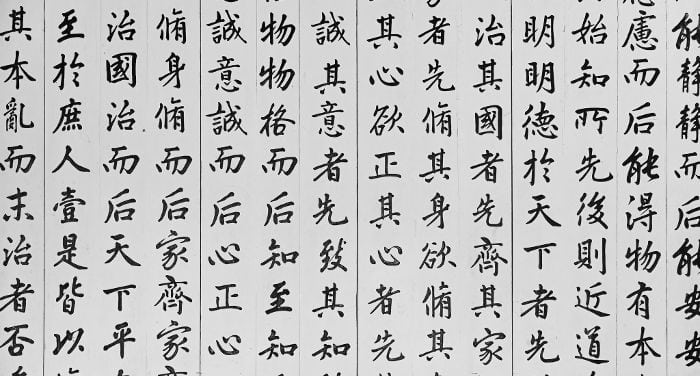 能静静而后能安安
慮而后能得物有本
始知所先後則近道
明明德於天下者先
治其國者先齊其家
者先脩其身欲脩其
其心欲正其心者先
誠其意者先致其知
物物格而后知至知
誠意誠而后心正心
脩身脩而后家齊家
治國治而后天下平
至於庶人壹是皆以
其本亂而末治者否